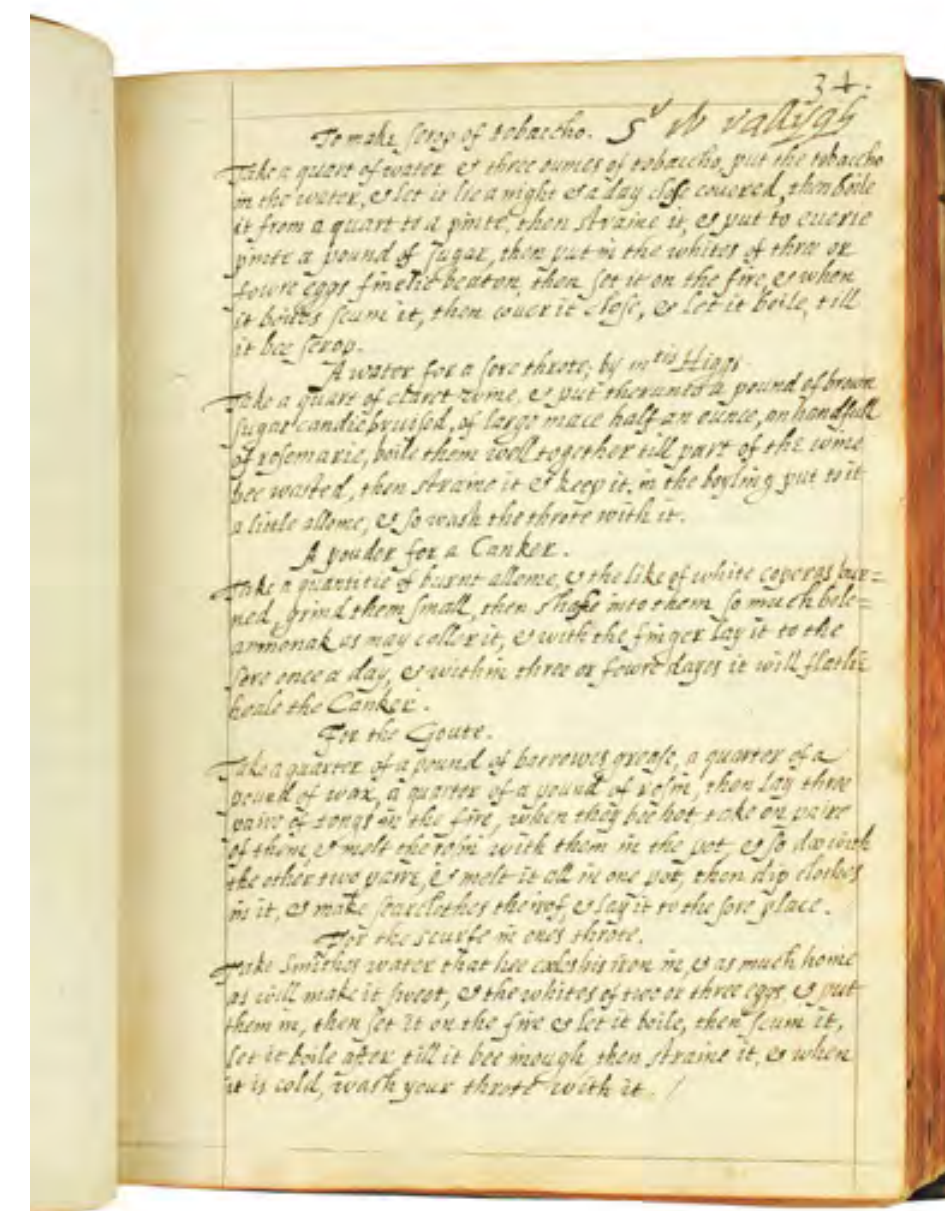 34.
To make serop of tobaccho. Sr W Rallygh
Take a quart of water & three ounces of tobaccho, put the tobaccho
in the water, & let it lie a night & a day close couered, then boile
it from a quart to a pinte, then straine it, & put to euerie
pinte a pound of sugar, then put in the whites of three or
fowre eggs finelie beaton, then set it on the fire, & when
it boiles scum it, then couer it close, & let it boile, till
it bee serop.
A water for a sore throte, by mtris Higgs
Take a quart of claret wine, & put therunto a pound of brown
sugar candie bruised, of large mace half an ounce, an handfull
of rosemarie, boile them well together till part of the wine
bee wasted, then straine it & keep it, in the boyling put to it
a little allome, & so wash the throte with it.
A pouder for a Canker.
Take a quantitie of burnt allome, & the like of white coperas bur=
ned, grind them small, then shake into them so much bole=
ammonak as may coller it, & with the finger lay it to the
sore once a day, & within three or fowre dayes it will flatlie
heale the Canker.
For the Goute.
Take a quarter of a pound of barrowes grease, a quarter of a
pound of wax, a quarter of a pound of rosin, then lay three
paire of tongs in the fire, when they bee hot take on paire
of them, & melt the rosin with them in the pot, & so doo with
the other two paire, & melt it all in one pot, then dip clothes
in it, & make searclothes therof, & lay it to the sore place.
For the scurfe in ones throte.
Take Smithes water that hee cooles his iron in, & as much honie
as will make it sweet, & the whites of two or three eggs, & put
them in, then set it on the fire & let it boile, then scum it,
let it boile after till it bee inough, then straine it, & when
it is cold, wash your throte with it. /